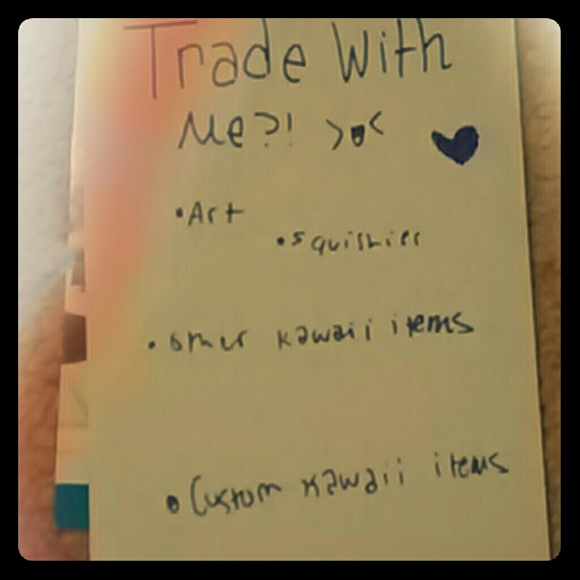 Trade With
Me?! >o<
•Art
•squishies
•other kawaii items
•Custom kawaii items